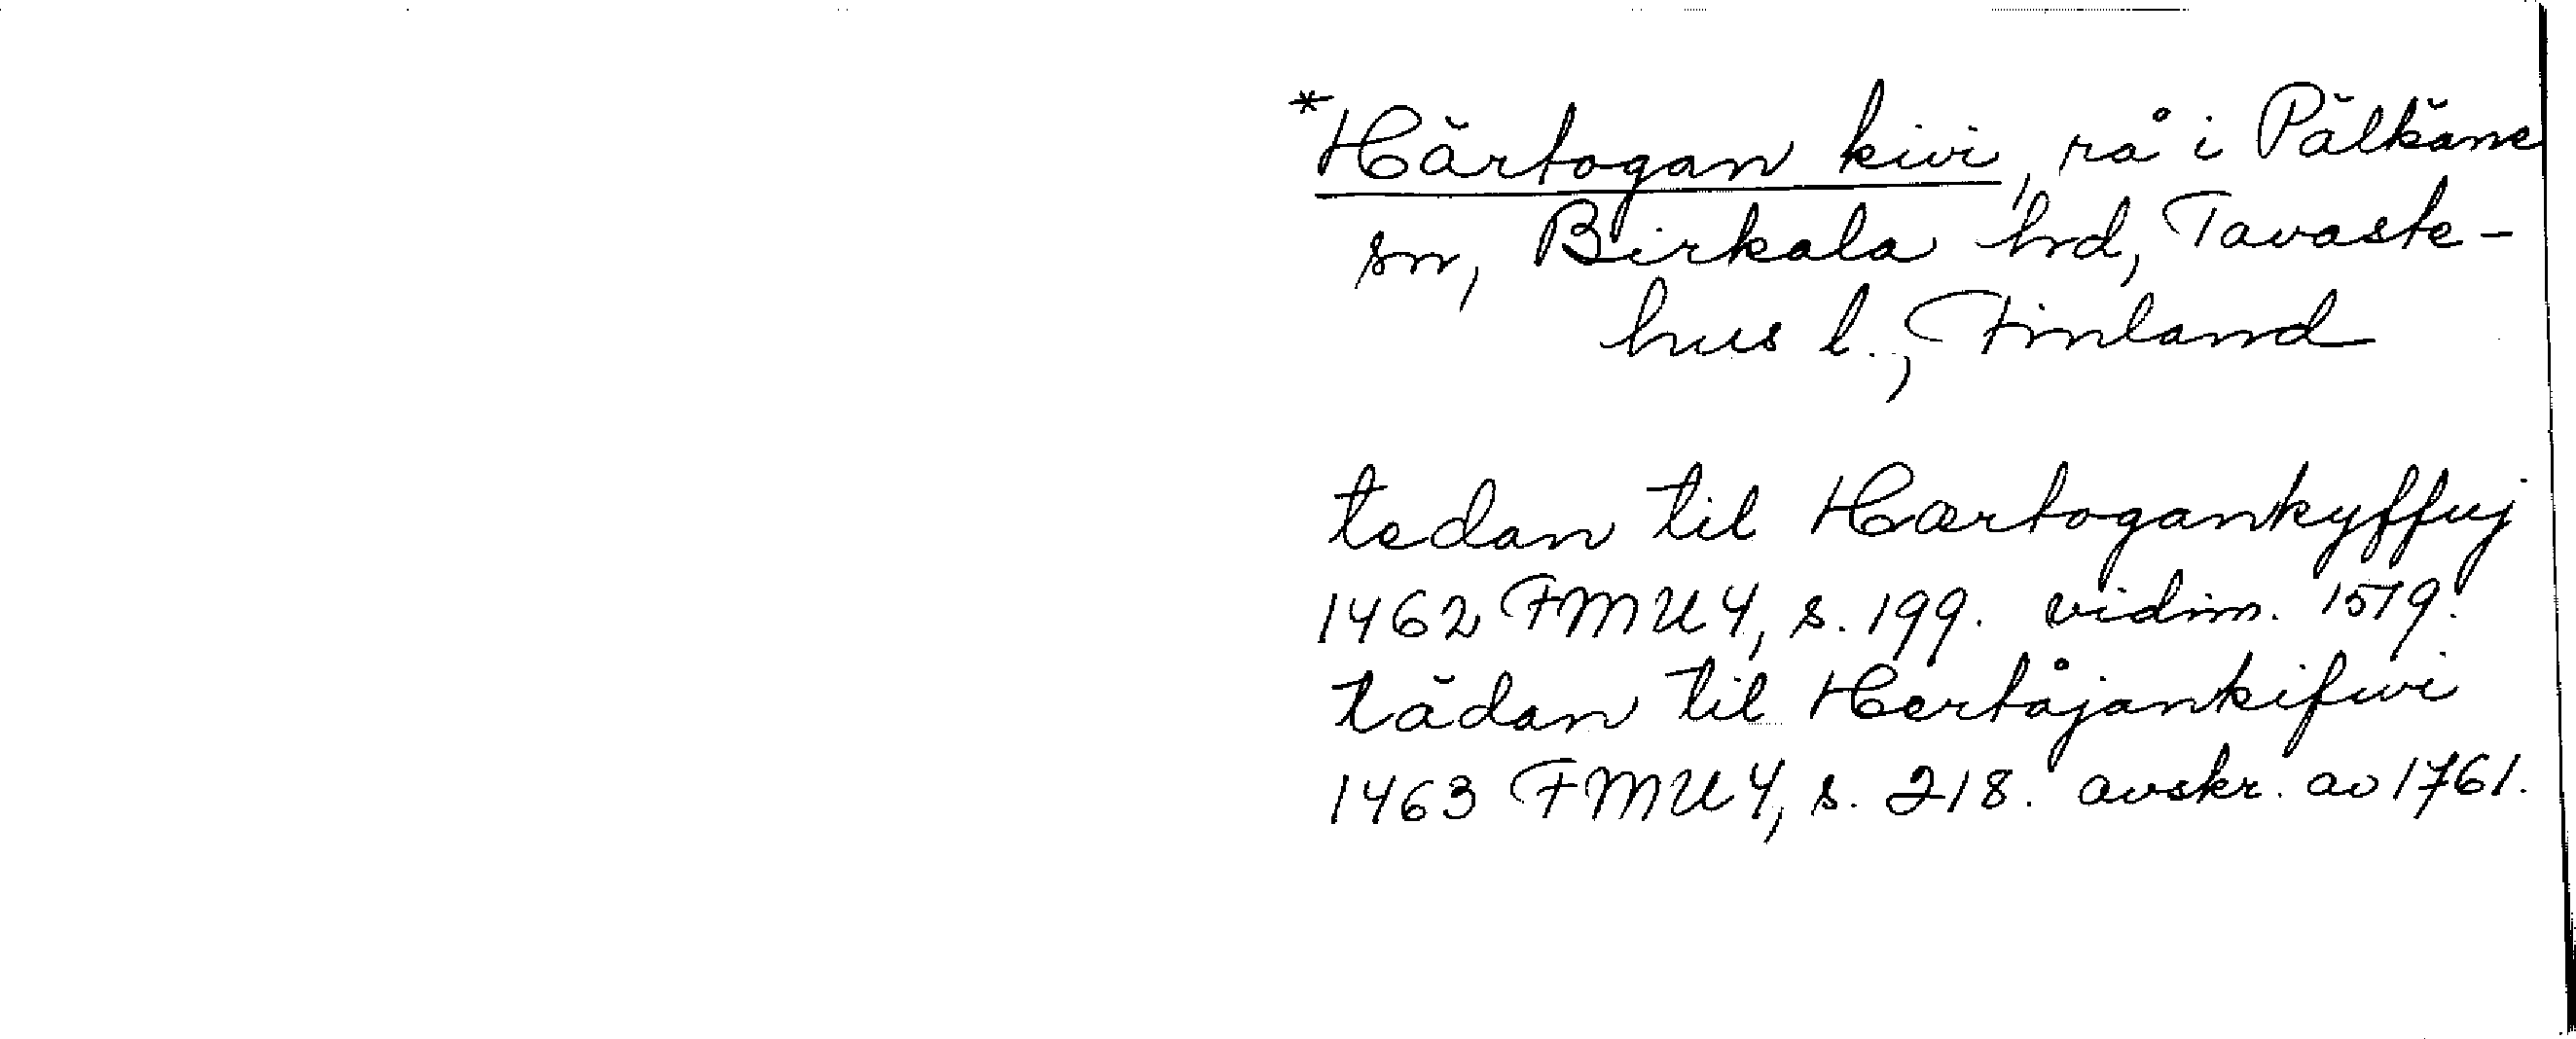 *Härtogan kivi, rå i Pälkäne
sn, Birkala hrd, Tavaste-
hus l., Finland
tedan til Hærtogankyffuj
1462 FMU 4, s. 199. vidim. 1579.
tädan til Hertåjankifwi
1463 FMU 4, s. 218. avskr. av 1761.